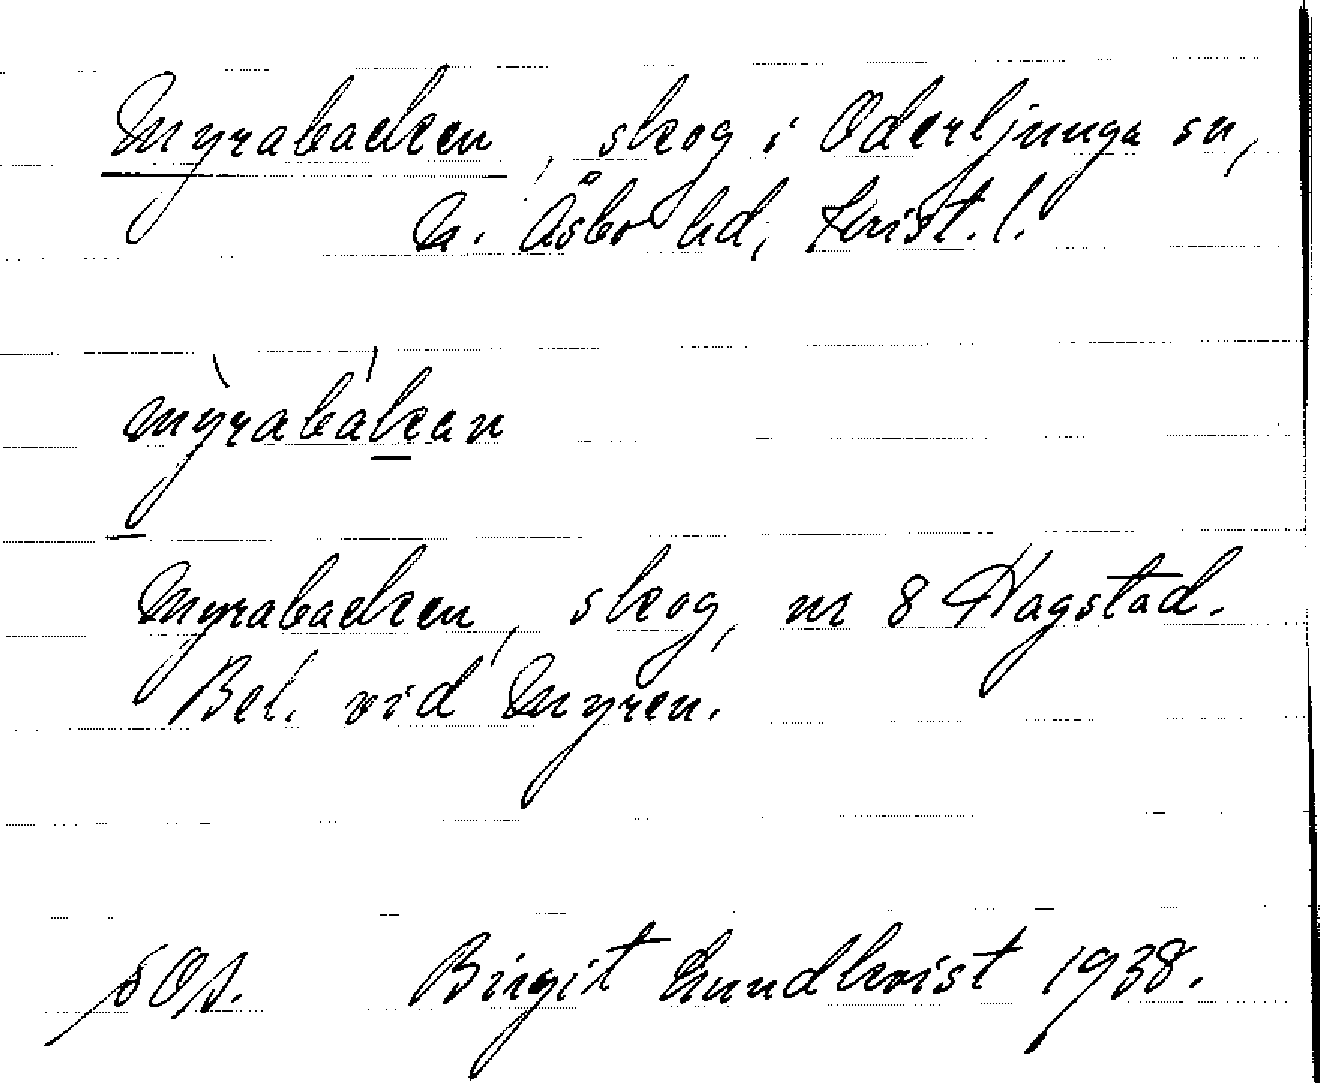 Myrabacken, skog i Oderljunga sn,
N. Åsbo hd, Krist. l.
mỳrabákan
Myrabacken, skog, nr 8 Hagstad.
Bel. vid Myren.
Birgit Lundkvist 1938.